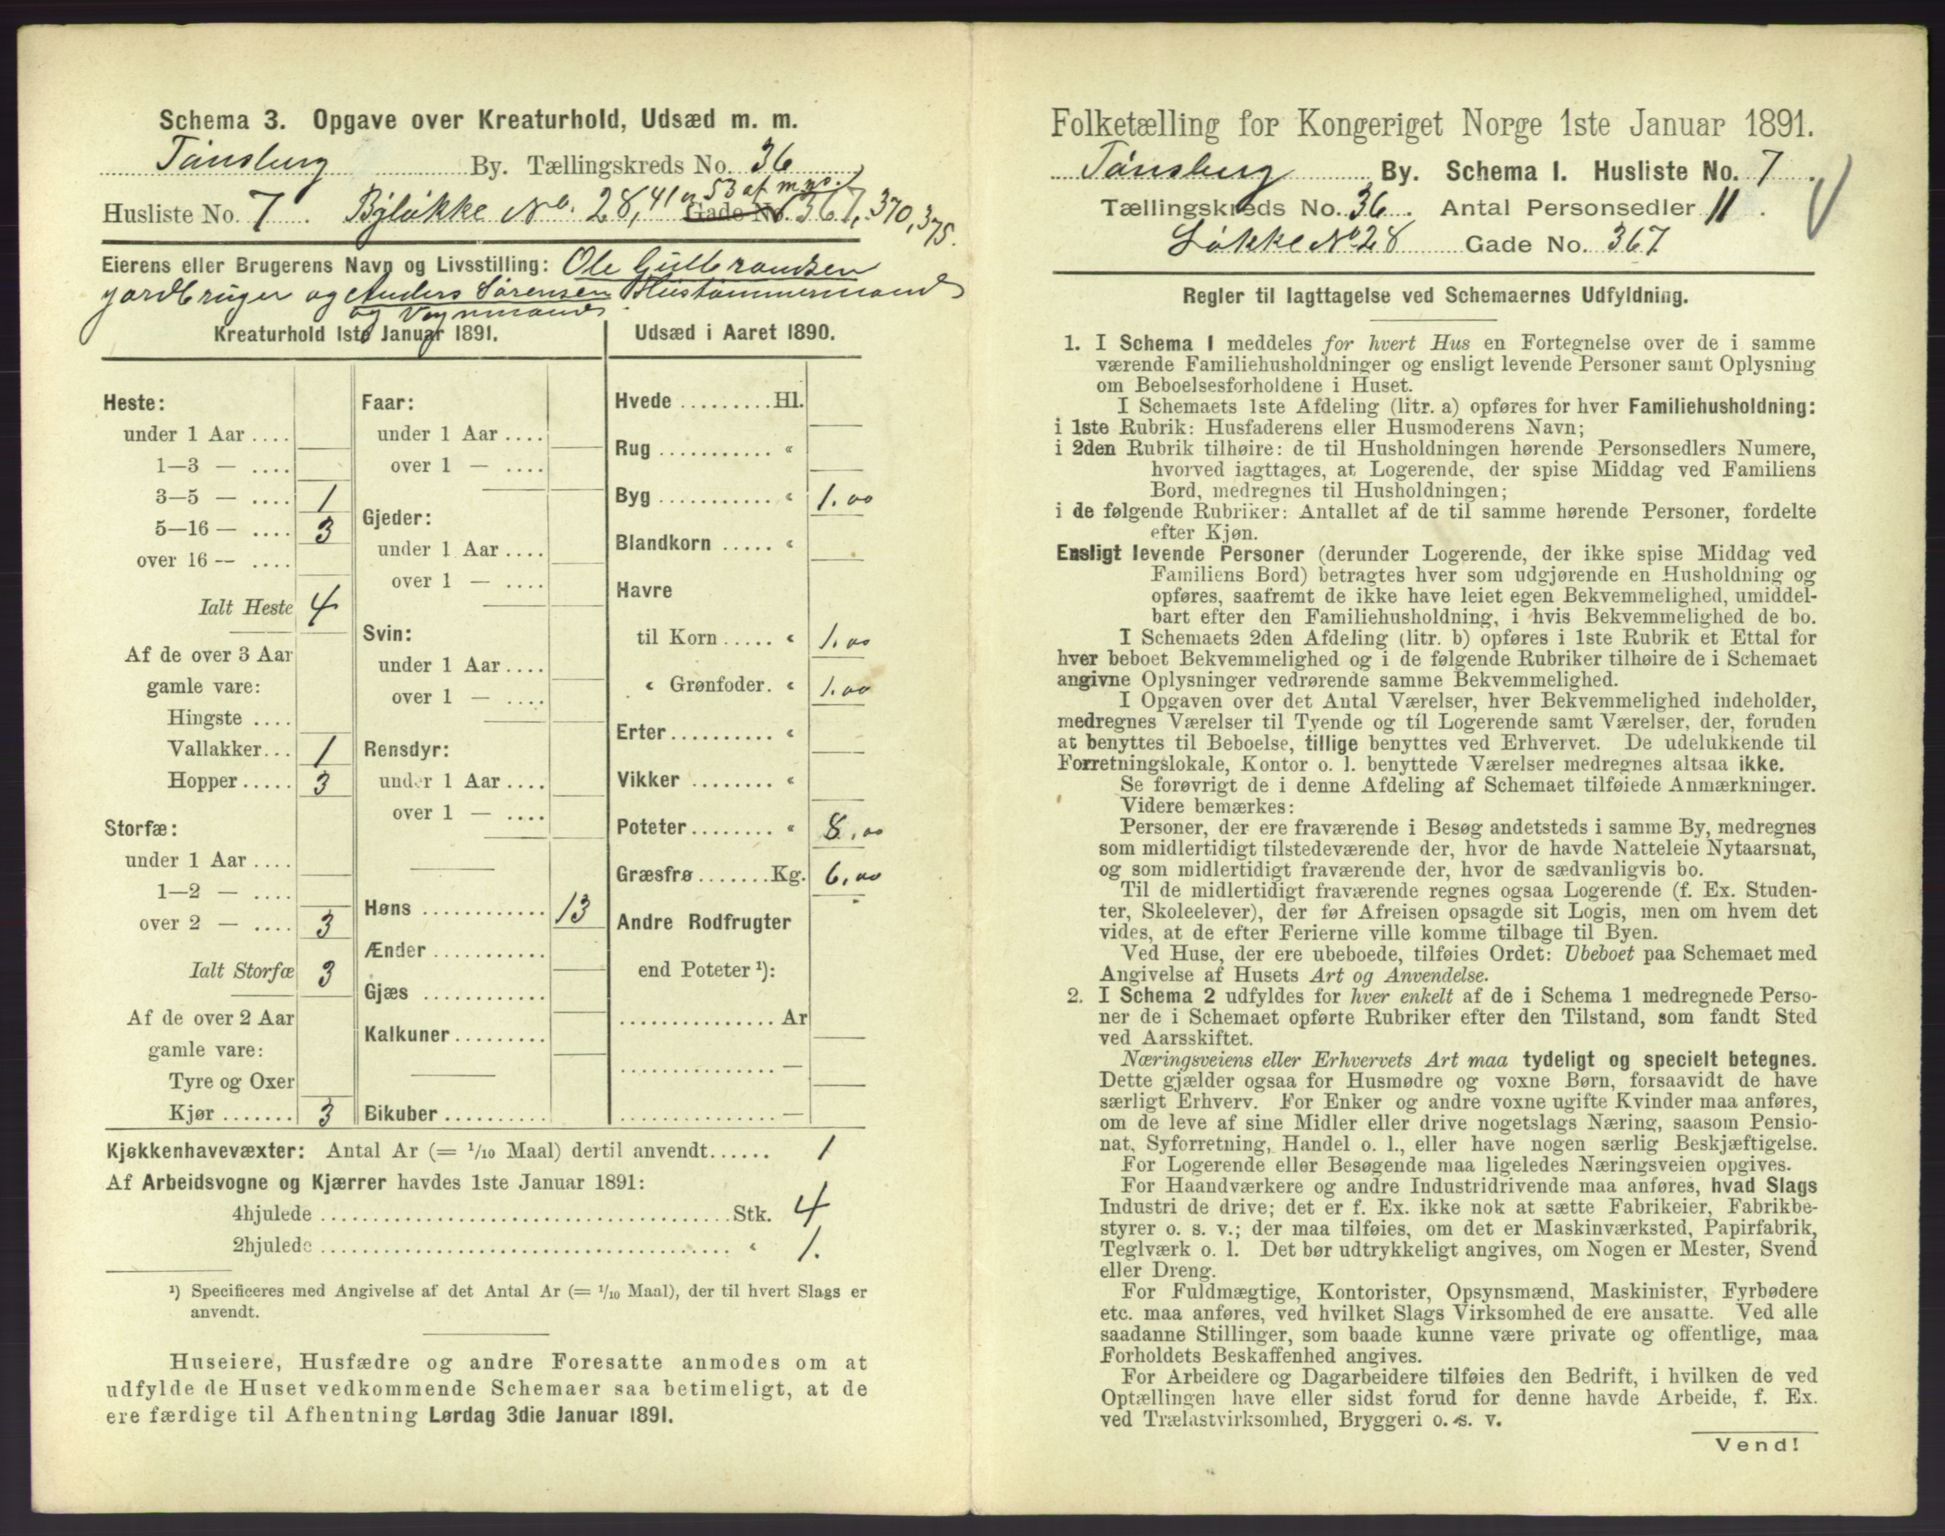 Schema 3. Opgave over Kreaturhold, Udsæd m. m.
Tønsberg By. Tællingskreds No. 36
Husliste No. 7 Byløkke No. 28, 41 og 53 af m. no. Gade No. 367, 370, 375.
Eierens eller Brugerens Navn og Livsstilling: Ole Gulbrandsen
jordbruger og Anders Sørensen Hustømmermand
og Vognmand.
Kreaturhold 1ste Januar 1891.
Heste:
under 1 Aar ....
1—3 — ....
3—5 — .... 1
5—16 — .... 3
over 16 — ....
Ialt Heste 4
Af de over 3 Aar
gamle vare:
Hingste ....
Vallakker... 1
Hopper ..... 3
Storfæ:
under 1 Aar ....
1—2 — ....
over 2 — .... 3
Ialt Storfæ 3
Af de over 2 Aar
gamle vare:
Tyre og Oxer
Kjør ....... 3
Faar:
under 1 Aar ....
over 1 — ....
Gjeder:
under 1 Aar ....
over 1 — ....
Svin:
under 1 Aar ....
over 1 — ....
Rensdyr:
under 1 Aar ....
over 1 — ....
Høns ........... 13
Ænder ...........
Gjæs ...........
Kalkuner .........
Bikuber ..........
Udsæd i Aaret 1890.
Hvede ......... Hl.
Rug ........... «
Byg ........... « 1.00
Blandkorn ..... «
Havre
til Korn ..... « 1.00
« Grønfoder. « 1.00
Erter .......... «
Vikker ........ «
Poteter ........ « 8.00
Græsfrø ....... Kg. 6.00
Andre Rodfrugter
end Poteter ¹):
............... Ar
............... —
............... —
Kjøkkenhavevæxter: Antal Ar (= 1/10 Maal) dertil anvendt...... 1
Af Arbeidsvogne og Kjærrer havdes 1ste Januar 1891:
4hjulede ..................................... Stk. 4
2hjulede ..................................... « 1.
¹) Specificeres med Angivelse af det Antal Ar (= 1/10 Maal), der til hvert Slags er
anvendt.
Huseiere, Husfædre og andre Foresatte anmodes om at
udfylde de Huset vedkommende Schemaer saa betimeligt, at de
ere færdige til Afhentning Lørdag 3die Januar 1891.
Folketælling for Kongeriget Norge 1ste Januar 1891.
Tønsberg By. Schema I. Husliste No. 7.
Tællingskreds No. 36. Antal Personsedler 11.
Løkke No 28 Gade No. 367
Regler til Iagttagelse ved Schemaernes Udfyldning.
1. I Schema 1 meddeles for hvert Hus en Fortegnelse over de i samme
værende Familiehusholdninger og ensligt levende Personer samt Oplysning
om Beboelsesforholdene i Huset.
I Schemaets 1ste Afdeling (litr. a) opføres for hver Familiehusholdning:
i 1ste Rubrik: Husfaderens eller Husmoderens Navn;
i 2den Rubrik tilhøire: de til Husholdningen hørende Personsedlers Numere,
hvorved iagttages, at Logerende, der spise Middag ved Familiens
Bord, medregnes til Husholdningen;
i de følgende Rubriker: Antallet af de til samme hørende Personer, fordelte
efter Kjøn.
Ensligt levende Personer (derunder Logerende, der ikke spise Middag ved
Familiens Bord) betragtes hver som udgjørende en Husholdning og
opføres, saafremt de ikke have leiet egen Bekvemmelighed, umiddel-
bart efter den Familiehusholdning, i hvis Bekvemmelighed de bo.
I Schemaets 2den Afdeling (litr. b) opføres i 1ste Rubrik et Ettal for
hver beboet Bekvemmelighed og i de følgende Rubriker tilhøire de i Schemaet
angivne Oplysninger vedrørende samme Bekvemmelighed.
I Opgaven over det Antal Værelser, hver Bekvemmelighed indeholder,
medregnes Værelser til Tyende og til Logerende samt Værelser, der, foruden
at benyttes til Beboelse, tillige benyttes ved Erhvervet. De udelukkende til
Forretningslokale, Kontor o. l. benyttede Værelser medregnes altsaa ikke.
Se forøvrigt de i denne Afdeling af Schemaet tilføiede Anmærkninger.
Videre bemærkes:
Personer, der ere fraværende i Besøg andetsteds i samme By, medregnes
som midlertidigt tilstedeværende der, hvor de havde Natteleie Nytaarsnat,
og som midlertidigt fraværende der, hvor de sædvanligvis bo.
Til de midlertidigt fraværende regnes ogsaa Logerende (f. Ex. Studen-
ter, Skoleelever), der før Afreisen opsagde sit Logis, men om hvem det
vides, at de efter Ferierne ville komme tilbage til Byen.
Ved Huse, der ere ubeboede, tilføies Ordet: Ubeboet paa Schemaet med
Angivelse af Husets Art og Anvendelse.
2. I Schema 2 udfyldes for hver enkelt af de i Schema 1 medregnede Perso-
ner de i Schemaet opførte Rubriker efter den Tilstand, som fandt Sted
ved Aarsskiftet.
Næringsveiens eller Erhvervets Art maa tydeligt og specielt betegnes.
Dette gjælder ogsaa for Husmødre og voxne Børn, forsaavidt de have
særligt Erhverv. For Enker og andre voxne ugifte Kvinder maa anføres,
om de leve af sine Midler eller drive nogetslags Næring, saasom Pensio-
nat, Syforretning, Handel o. l., eller have nogen særlig Beskjæftigelse.
For Logerende eller Besøgende maa ligeledes Næringsveien opgives.
For Haandværkere og andre Industridrivende maa anføres, hvad Slags
Industri de drive; det er f. Ex. ikke nok at sætte Fabrikeier, Fabrikbe-
styrer o. s. v.; der maa tilføies, om det er Maskinværksted, Papirfabrik,
Teglværk o. l. Det bør udtrykkeligt angives, om Nogen er Mester, Svend
eller Dreng.
For Fuldmægtige, Kontorister, Opsynsmænd, Maskinister, Fyrbødere
etc. maa anføres, ved hvilket Slags Virksomhed de ere ansatte. Ved alle
saadanne Stillinger, som baade kunne være private og offentlige, maa
Forholdets Beskaffenhed angives.
For Arbeidere og Dagarbeidere tilføies den Bedrift, i hvilken de ved
Optællingen have eller sidst forud for denne havde Arbeide, f. Ex.
ved Trælastvirksomhed, Bryggeri o. s. v.
Vend!